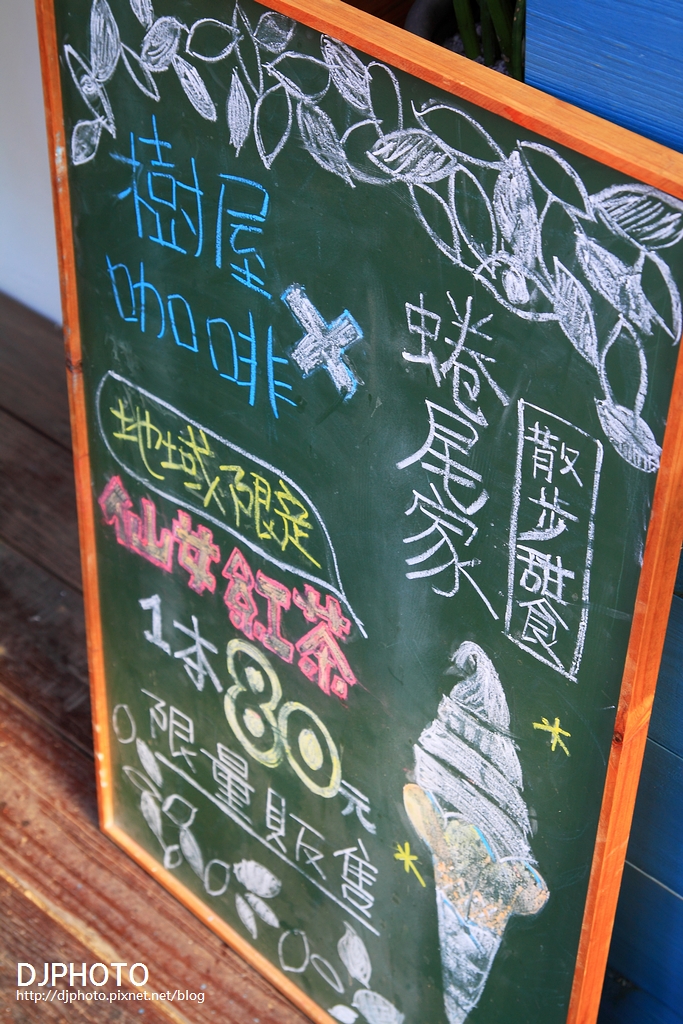 樹屋
咖啡
×
蜷尾家
散步甜食
地域限定
仙女紅茶
1本80元
限量販售
DJPHOTO
http://djphoto.pixnet.net/blog